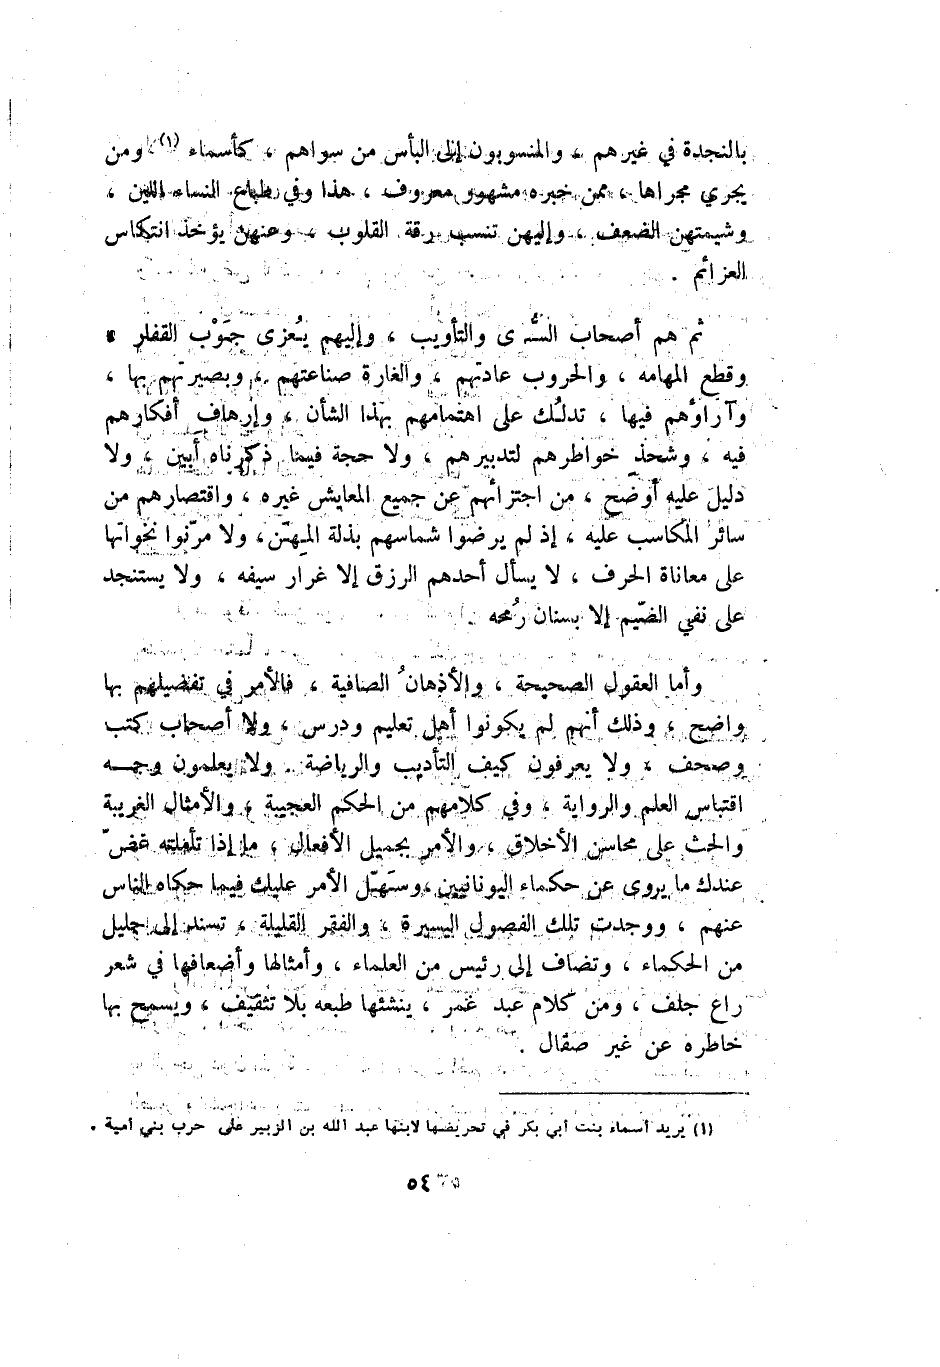 بالنجدة في غيرهم ، والمنسوبون إلى البأس من سواهم ، كأسماء (١) ومن
يجري مجراها ، ممن خبره مشهور معروف ، هذا وفي طباع النساء اللين ،
وشيمتهن الضعف ، وإليهن تنسب رقة القلوب ، وعنهن يؤخذ انتكاس
العزائم .
ثم هم أصحاب السُّرى والتأويب ، وإليهم يُعزى جَوْب القفار ،
وقطع المهامه ، والحروب عادتهم ، والغارة صناعتهم ، وبصيرتهم بها ،
وآراؤهم فيها ، تدلك على اهتمامهم بهذا الشأن ، وإرهاف أفكارهم
فيه ، وشحذ خواطرهم لتدبيرهم ، ولا حجة فيما ذكرناه أبين ، ولا
دليل عليه أوضح ، من اجتزائهم عن جميع المعايش غيره ، واقتصارهم من
سائر المكاسب عليه ، إذ لم يرضوا شماسهم بذلة المهن ، ولا مرّنوا نخواتها
على معاناة الحرف ، لا يسأل أحدهم الرزق إلا غرار سيفه ، ولا يستنجد
على نفي الضّيم إلا بسنان رُمحه
وأما العقول الصحيحة ، والأذهانُ الصافية ، فالأمر في تفضيلهم بها
واضح ، وذلك أنهم لم يكونوا أهل تعليم ودرس ، ولا أصحاب كتب
وصحف ، ولا يعرفون كيف التأديب والرياضة . ولا يعلمون وجه
اقتباس العلم والرواية ، وفي كلامهم من الحكم العجيبة ، والأمثال الغريبة
والحث على محاسن الأخلاق ، والأمر بجميل الأفعال ، ما إذا تأملته غضّ
عندك ما يروى عن حكماء اليونانيين ، وسهّل الأمر عليك فيما حكاه الناس
عنهم ، ووجدت تلك الفصول اليسيرة ، والفقر القليلة ، تسند إلى جليل
من الحكماء ، وتضاف إلى رئيس من العلماء ، وأمثالها وأضعافها في شعر
راع جلف ، ومن كلام عبد غمر ، ينشئها طبعه بلا تثقيف ، ويسمح بها
خاطره عن غير صقال .
(١) يريد أسماء بنت أبي بكر في تحريضها لابنها عبد الله بن الزبير على حرب بني أمية .
٥٤